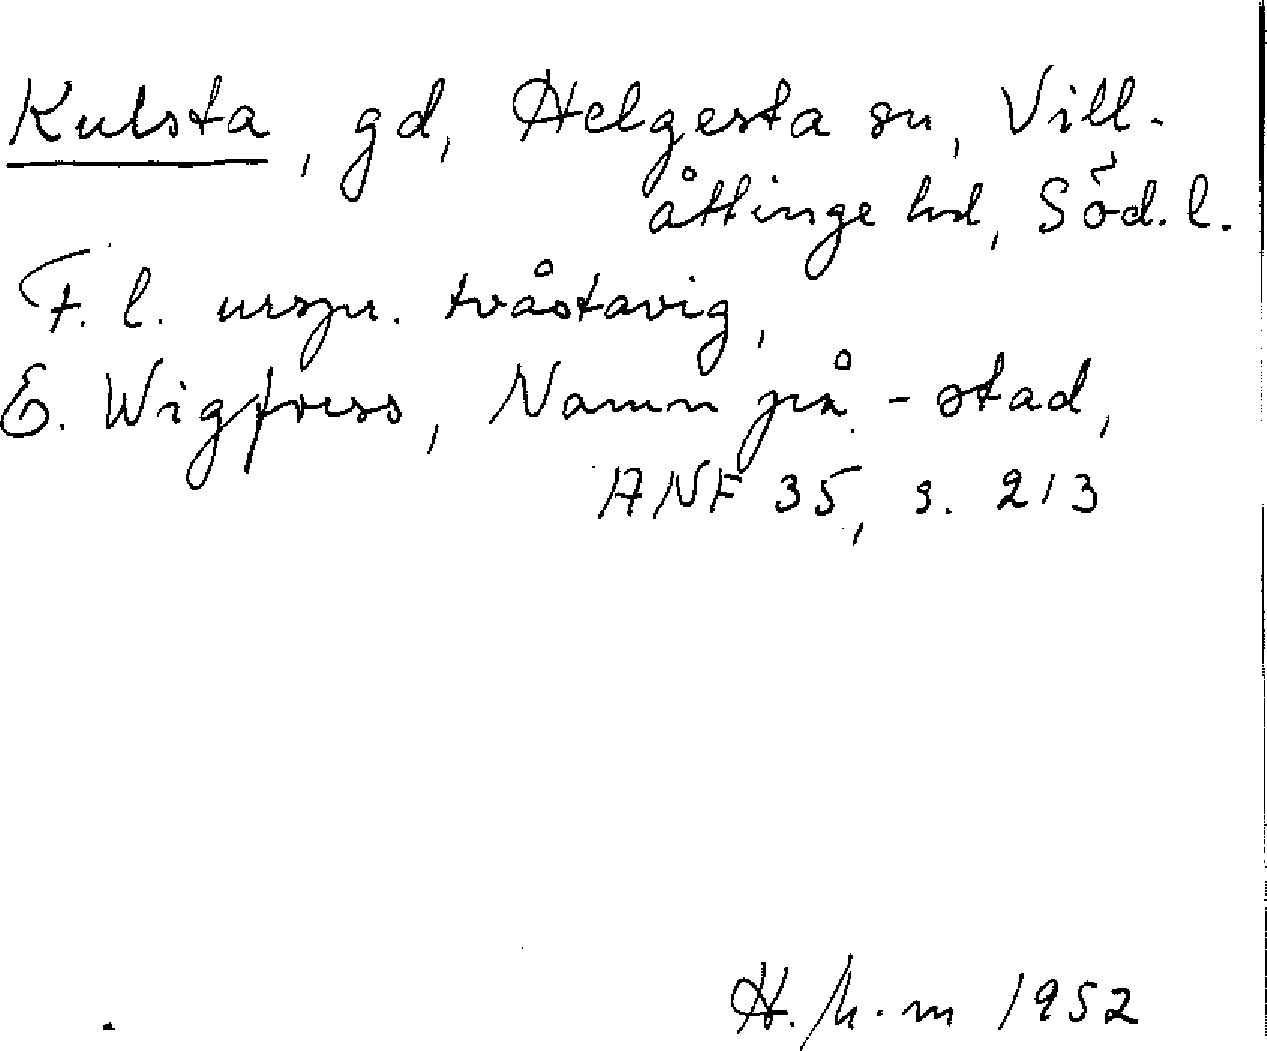 Kulsta, gd, Helgesta sn, Vill-
åttinge hd, Söd. l.
F. l. urspr. tvåstavig,
E. Wigforss, Namn på -stad,
ANF 35, s. 213
1952